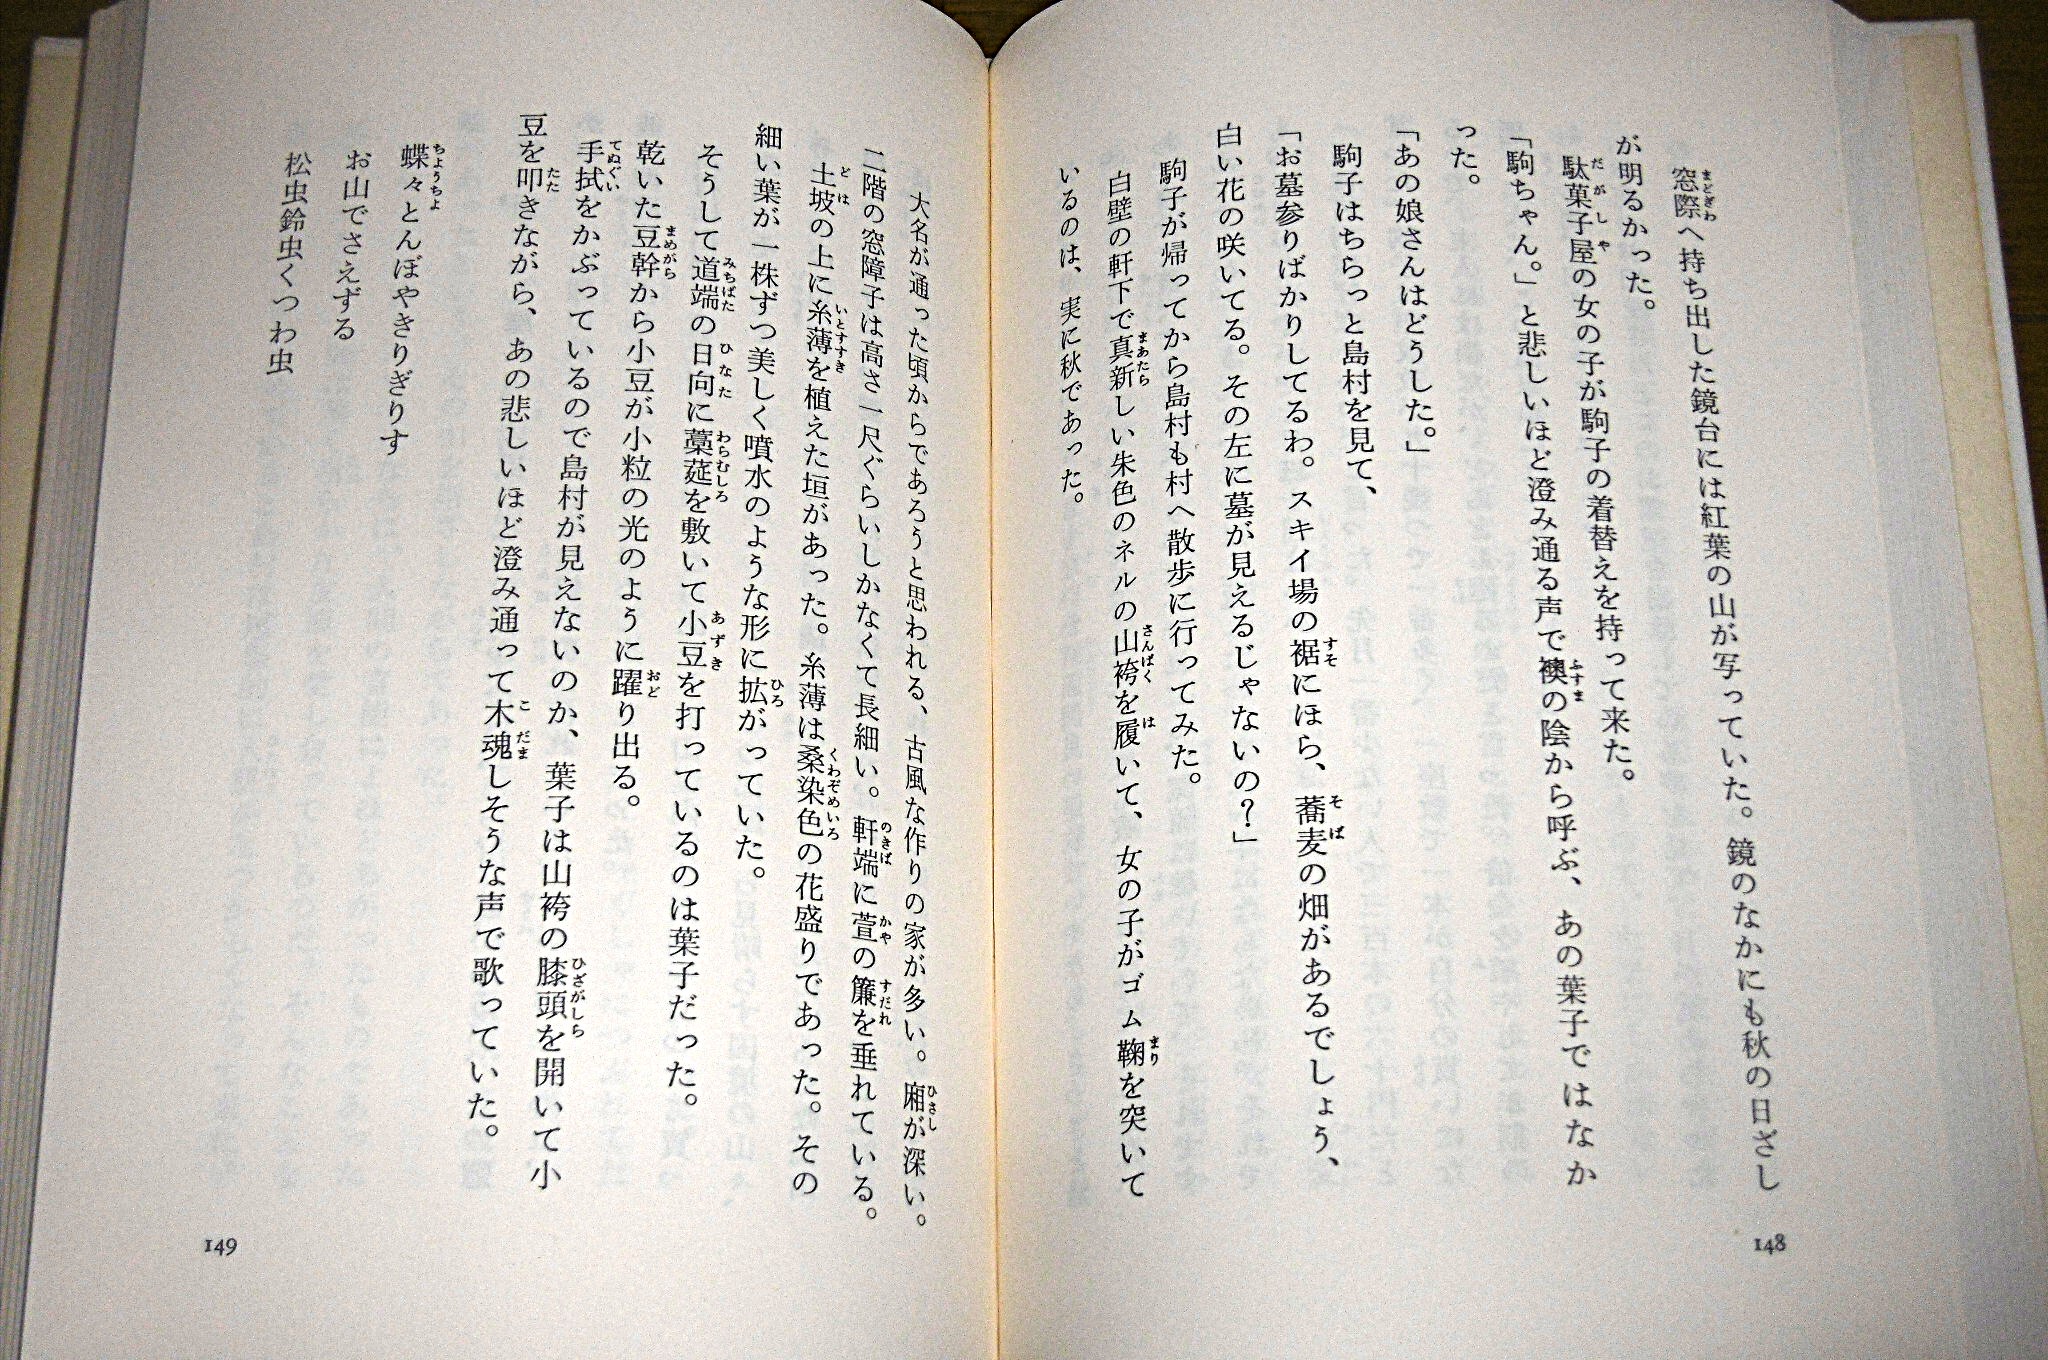 窓際へ持ち出した鏡台には紅葉の山が写っていた。鏡のなかにも秋の日ざし
が明るかった。
駄菓子屋の女の子が駒子の着替えを持って来た。
「駒ちゃん。」と悲しいほど澄み通る声で襖の陰から呼ぶ、あの葉子ではなか
った。
「あの娘さんはどうした。」
駒子はちらっと島村を見て、
「お墓参りばかりしてるわ。スキイ場の裾にほら、蕎麦の畑があるでしょう、
白い花の咲いてる。その左に墓が見えるじゃないの?」
駒子が帰ってから島村も村へ散歩に行ってみた。
白壁の軒下で真新しい朱色のネルの山袴を履いて、女の子がゴム鞠を突いて
いるのは、実に秋であった。
148
大名が通った頃からであろうと思われる、古風な作りの家が多い。廂が深い。
二階の窓障子は高さ一尺ぐらいしかなくて長細い。軒端に萱の簾を垂れている。
土坡の上に糸薄を植えた垣があった。糸薄は桑染色の花盛りであった。その
細い葉が一株ずつ美しく噴水のような形に拡がっていた。
そうして道端の日向に藁莚を敷いて小豆を打っているのは葉子だった。
乾いた豆幹から小豆が小粒の光のように躍り出る。
手拭をかぶっているので島村が見えないのか、葉子は山袴の膝頭を開いて小
豆を叩きながら、あの悲しいほど澄み通って木魂しそうな声で歌っていた。
蝶々とんぼやきりぎりす
お山でさえずる
松虫鈴虫くつわ虫
149